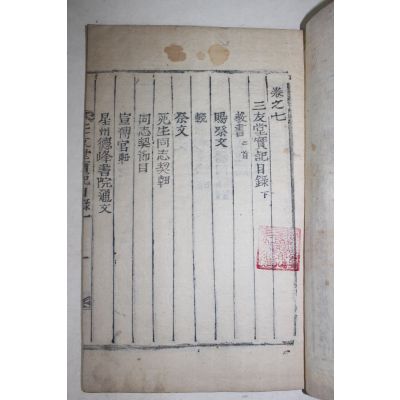 卷之七
三友堂實記目錄 下
敎書 二首
賜祭文
輓
祭文
死生同志契軸
同志契節目
宣傳官軸
星州德峰書院通文
三友堂實記目錄
一